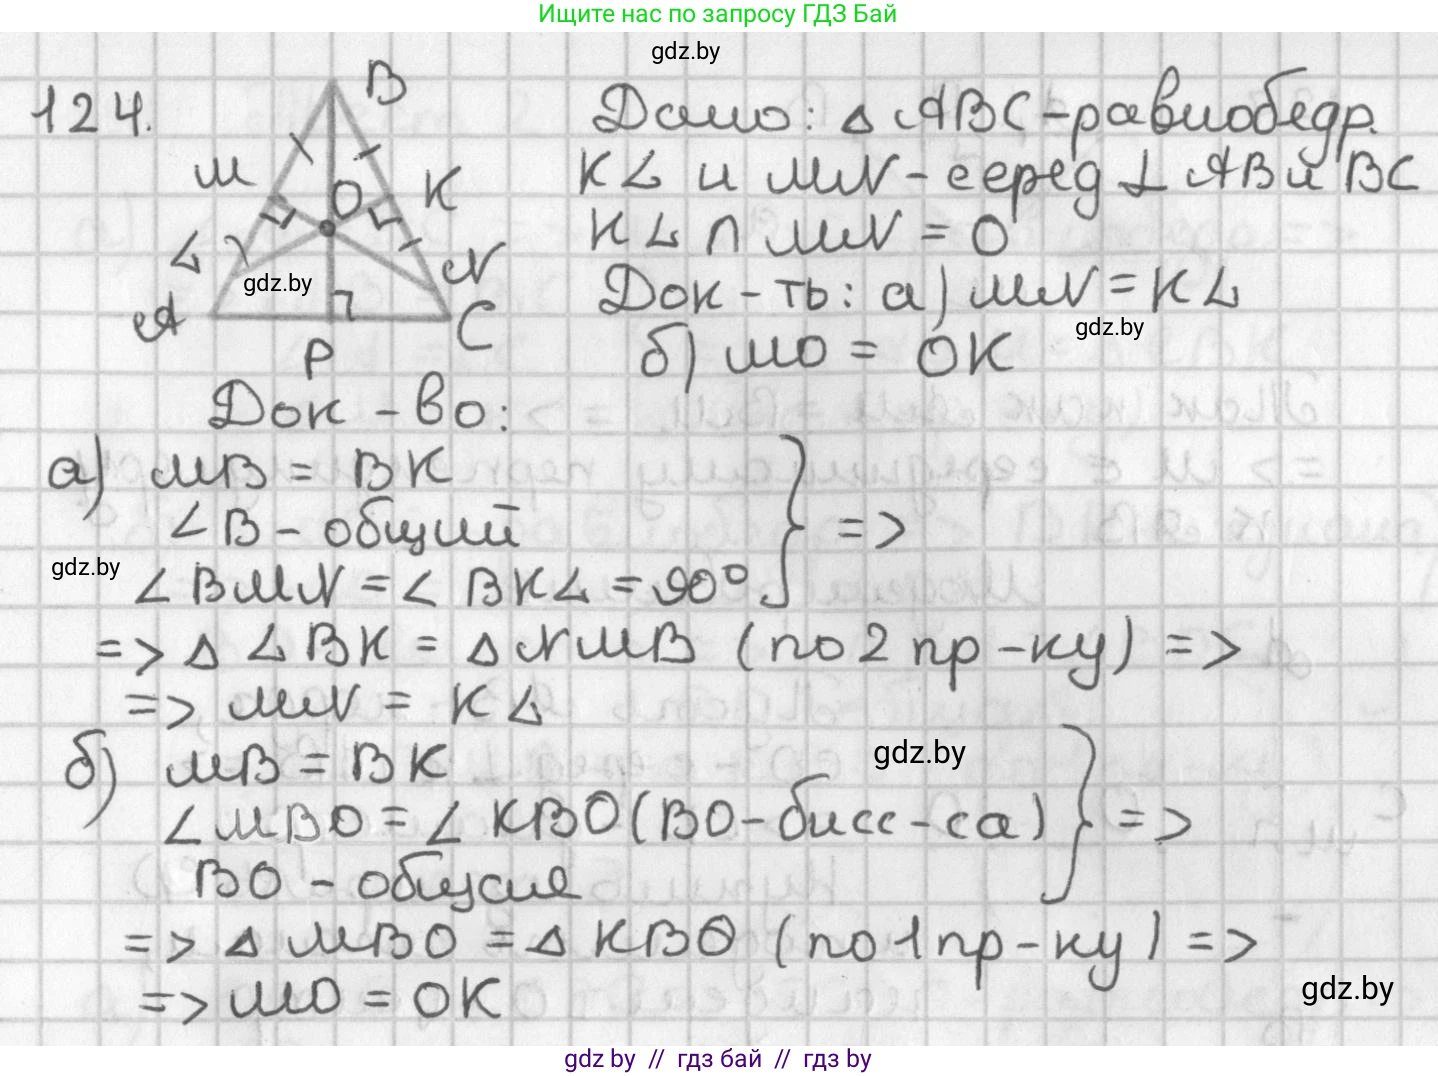 Ищите нас по запросу ГДЗ Бай
gdz.by
124.
B
M
O
K
L
N
gdz.by
A
C
P
Дано: △ ABC - равнобедр.
KL и MN - серед ⊥ AB и BC
KL ∩ MN = O
Док-ть: а) MN = KL
gdz.by
б) MO = OK
Док-во:
а) MB = BK
∠B - общий
gdz.by
∠BMN = ∠BKL = 90° } =>
=> △ LBK = △ NMB (по 2 пр-ку) =>
=> MN = KL
б) MB = BK
gdz.by
∠MBO = ∠KBO (BO - бисс-са) } =>
BO - общая
=> △ MBO = △ KBO (по 1 пр-ку) =>
=> MO = OK
gdz.by
gdz.by // гдз бай // гдз by